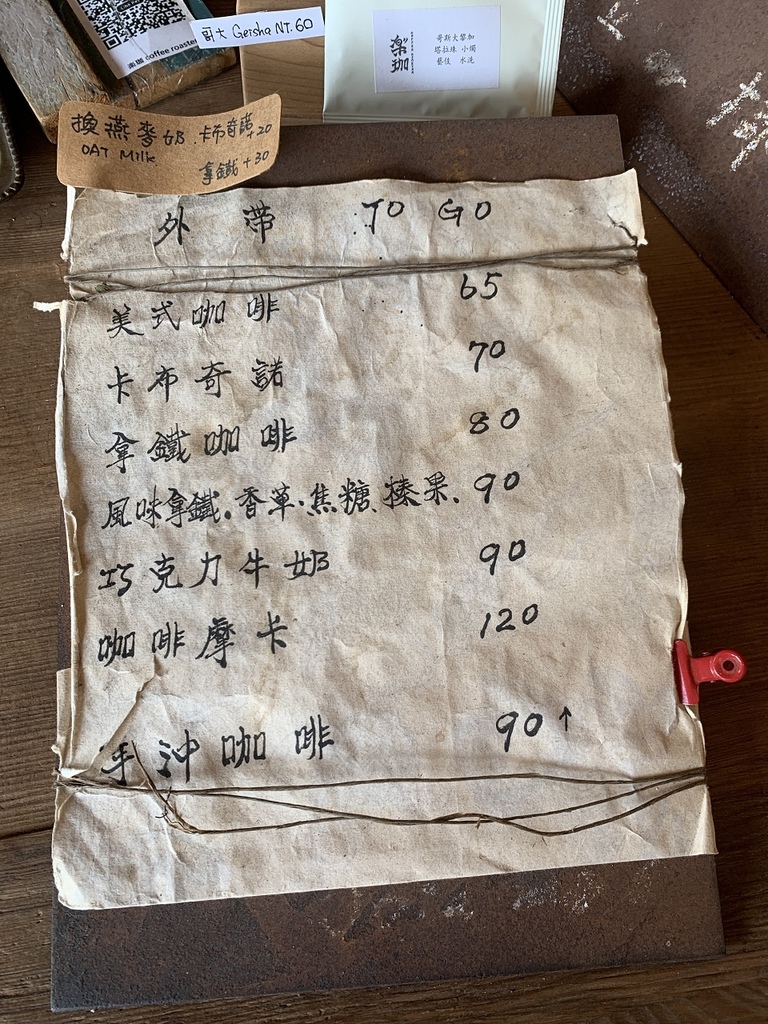 楽珈 coffee roaster
哥大 Geisha NT.60
楽珈
哥斯大黎加
塔拉珠 小燭
藝伎 水洗
換燕麥奶.卡布奇諾+20
OAT Milk
拿鐵+30
外帶 TO GO
美式咖啡 65
卡布奇諾 70
拿鐵咖啡 80
風味拿鐵.香草.焦糖、榛果. 90
巧克力牛奶 90
咖啡摩卡 120
手沖咖啡 90↑